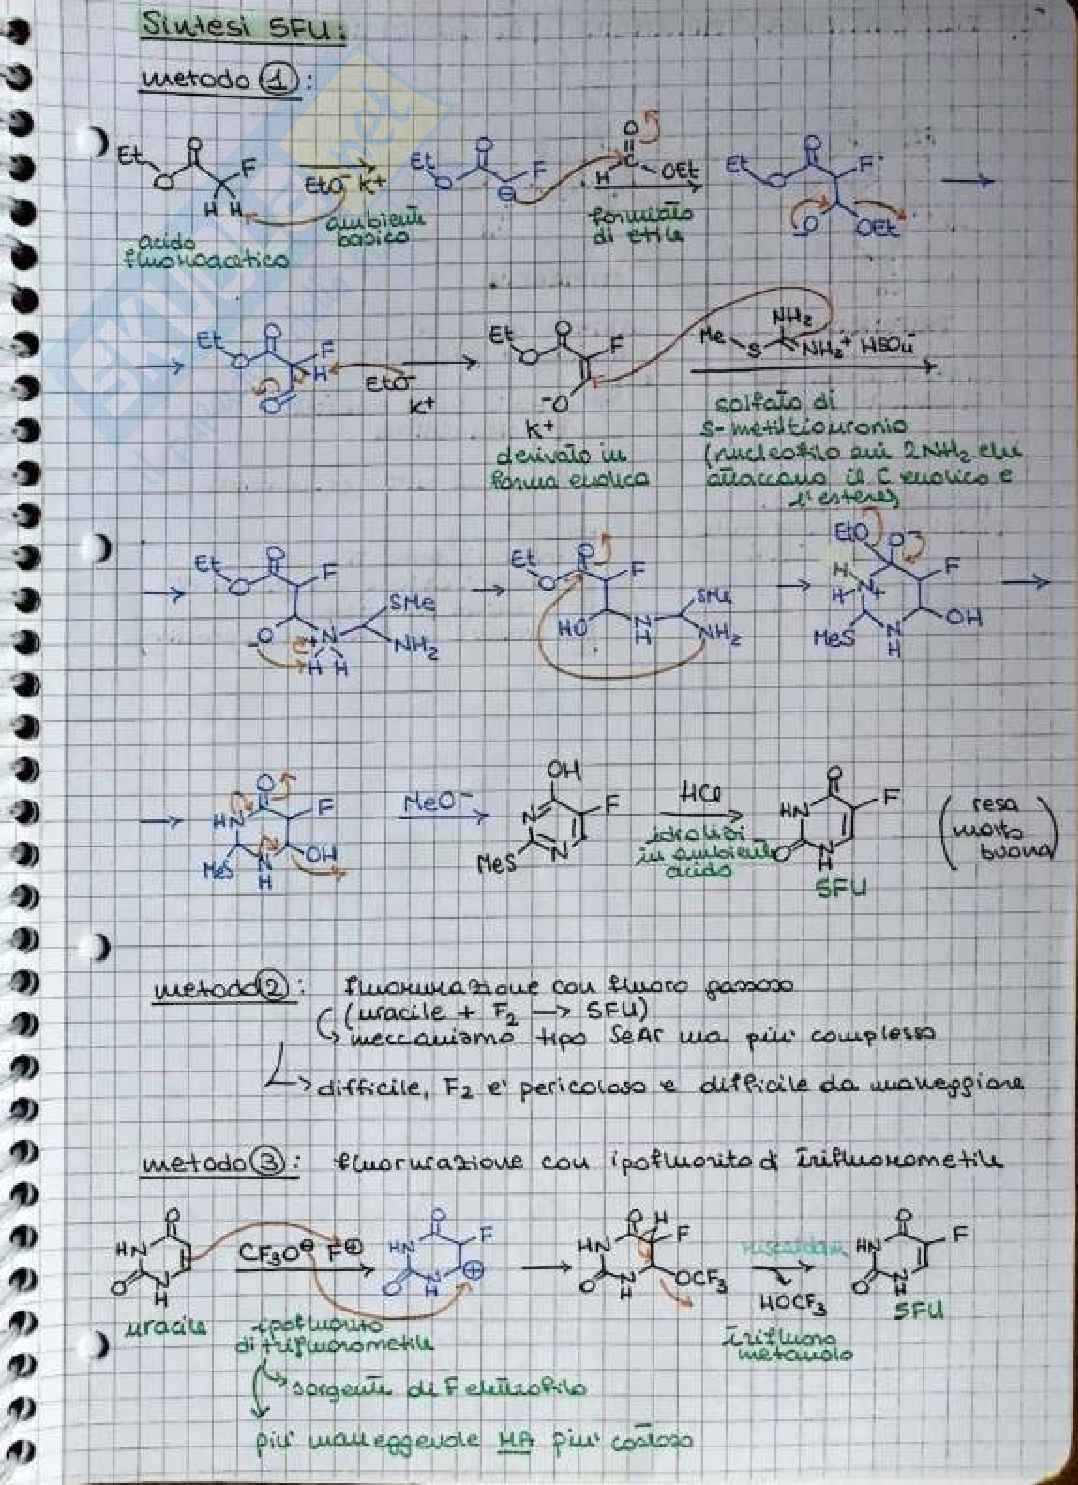 Sintesi 5FU:
metodo 1:
Et O O F H H
EtO⁻ K⁺
ambiente basico
acido fluoroacetico
Et O O F ⊖
O H C OEt
formiato di etile
Et O O F ⁻O OEt
Et O O F H O
EtO⁻ K⁺
Et O O F ⁻O K⁺
derivato in forma enolica
Me S NH₂ NH₂⁺ HSO₄⁻
solfato di S-metiltiouronio
(nucleofilo sui 2NH₂ che
attaccano il C enolico e
l'estere)
Et O O F ⁻O N⁺ H H SMe NH₂
Et O O F HO N H SMe NH₂
EtO O⁻ F H H N⁺ MeS N H OH
O F HN MeS N H OH
MeO⁻
OH F N N MeS
HCl
idrolisi in ambiente acido
O F HN O N H
5FU
(resa molto buona)
metodo 2: fluorurazione con fluoro gassoso
(uracile + F₂ → 5FU)
meccanismo tipo SeAr ma piu' complesso
difficile, F₂ e' pericoloso e difficile da maneggiare
metodo 3: fluorurazione con ipofluorito di trifluorometile
O HN O N H
uracile
CF₃O⊖ F⊕
ipofluorito di trifluorometile
O F HN O N H ⊕
O H F HN O N H OCF₃
HOCF₃
trifluoro metanolo
O F HN O N H
5FU
sorgente di F elettrofilo
piu' maneggevole MA piu' costoso